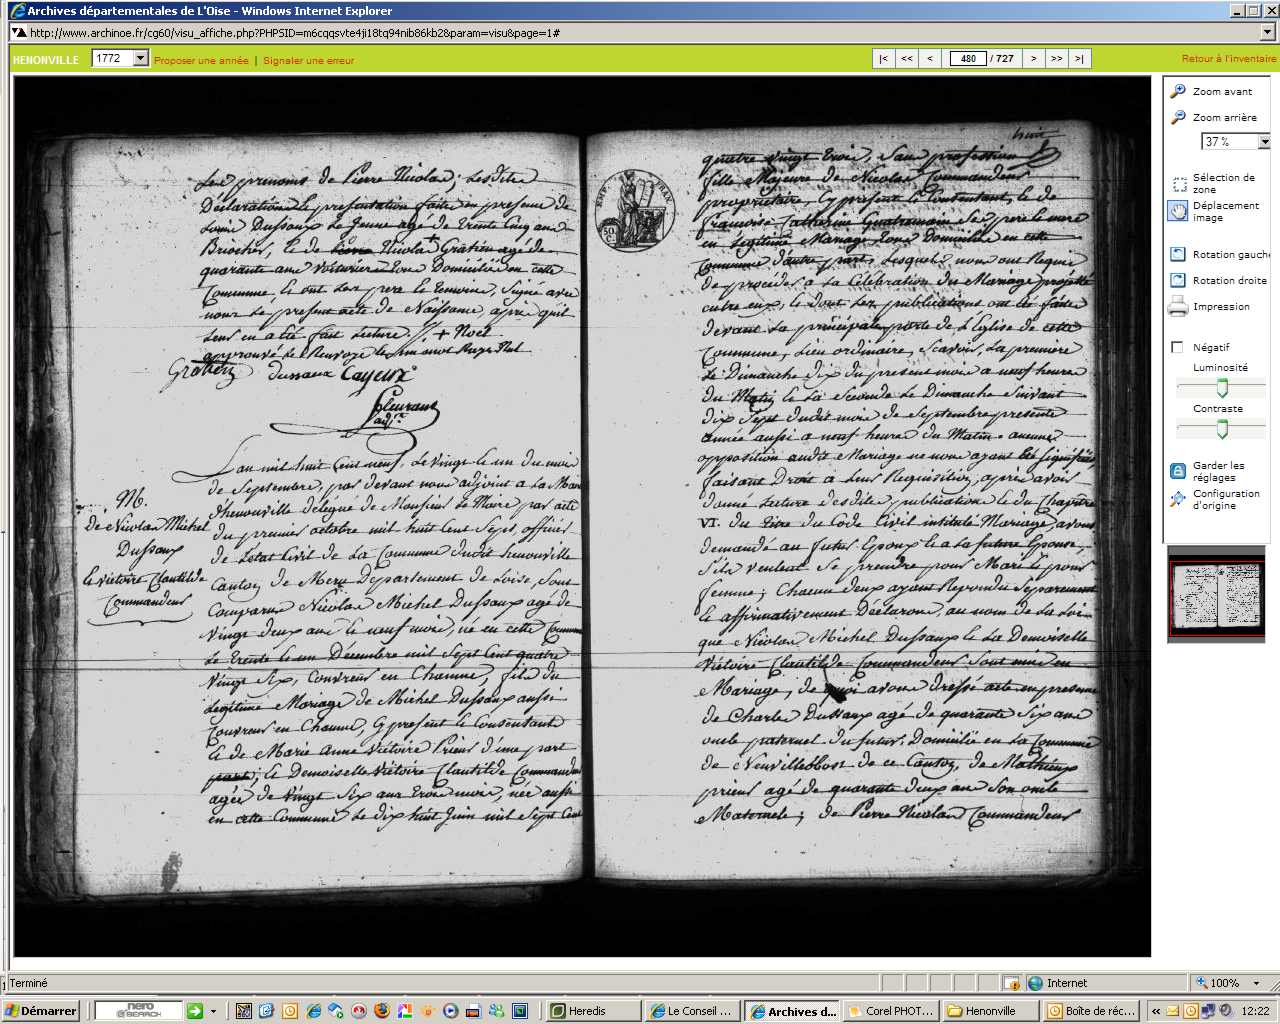 Archives départementales de L'Oise - Windows Internet Explorer
http://www.archinoe.fr/cg60/visu_affiche.php?PHPSID=m6cqqsvte4ji18tq94nib86kb2&param=visu&page=1#
HENONVILLE 1772 Proposer une année | Signaler une erreur |< << < 480 / 727 > >> >| Retour à l'inventaire
Les prenoms de Pierre Nicolas; Lesdites
Declaration et presentation faite en presence de
Dussaux Le Jeune agé de trente Cinq ans
et de Nicolas Gratien agé de
quarante ans Voiturier tous Domiciliés en cette
Commune, et ont Les pere et temoins, Signé avec
nous Le present acte de Naissance, après qu'il
Leur en a été fait Lecture. + Noel
approuvé Le Renvoye
Dussaux Cayeux
Fleurans
adj.
L'an mil huit Cent neuf, Le vingt et un du mois
de Septembre, par devant nous adjoint a La Mairie
d'henouville délégué de Monsieur Le Maire par acte
du premier octobre mil huit Cent Sept, officier
de L'etat Civil de La Commune dudit henouville
Canton de Meru Département de Loise, Sont
Comparus Nicolas Michel Dussaux agé de
Vingt deux ans et neuf mois, né en cette Commune
Le trente et un Decembre mil Sept Cent quatre
Vingt Six, Couvreur en Chaume, fils du
Legitime Mariage de Michel Dussaux aussi
Couvreur en Chaume, Cy present et Consentant
et de Marie Anne Victoire Prieur d'une part
part; et Demoiselle Victoire Clautilde Commandeur
agée de vingt Six ans trois mois, née aussi
en cette Commune Le dix huit Juin mil Sept Cent
M.
de Nicolas Michel
Dussaux
et victoire Clautilde
Commandeur
REP. FRA.
50 C.
quatre vingt trois, Sans profession
fille Majeure de Nicolas Commandeur
propriétaire, Cy present et Consentant, et de
françoise Catherine Quatremain Ses pere et mere
en Legitime Mariage tous Domiciliés en cette
Commune d'autre part, Lesquels nous ont Requis
de procéder a La Célébration du Mariage projetté
entre eux, et dont Les publications ont été faites
devant La principale porte de L'Eglise de cette
Commune, Lieu ordinaire, Scavoir, La premiere
Le Dimanche dix du present mois a neuf heures
du Matin et La Seconde Le Dimanche Suivant
dix Sept dudit mois de Septembre presente
année aussi a neuf heures du Matin. aucune
opposition audit Mariage ne nous ayant été Signifiée
faisant Droit a Leur Requisition, après avoir
donné Lecture desdites publications et du Chapitre
VI. du titre du Code Civil intitulé Mariage, avons
demandé au futur Epoux et a La future Epouse,
S'ils veulent Se prendre pour Mari et pour
femme; Chacun d'eux ayant Repondu Separement
et affirmativement Déclarons, au nom de La Loi
que Nicolas Michel Dussaux et La Demoiselle
Victoire Clautilde Commandeur Sont unis en
Mariage, de quoi avons dressé acte en presence
de Charles Dussaux agé de quarante Six ans
oncle paternel du futur, Domicilié en La Commune
de Neuvillebosc de ce Canton, de Mathieux
prieur agé de quarante deux ans Son oncle
Maternel; de Pierre Nicolas Commandeur
Zoom avant
Zoom arrière
37 %
Sélection de zone
Déplacement image
Rotation gauche
Rotation droite
Impression
Négatif
Luminosité
Contraste
Garder les réglages
Configuration d'origine
Terminé Internet 100%
Démarrer nero SEARCH Heredis Le Conseil ... Archives d... Corel PHOT... Henonville Boîte de réc... « 12:22